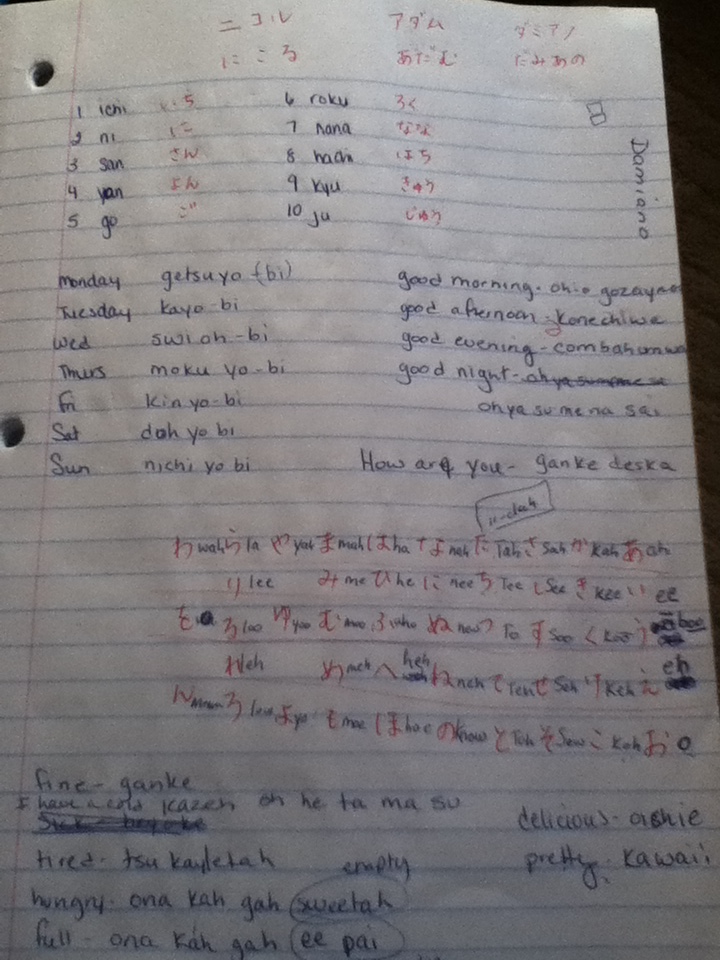 ニコル アダム ダミアノ
にこる あだむ だみあの
1 ichi いち 6 roku ろく
2 ni に 7 nana なな
3 san さん 8 hachi はち
4 yan よん 9 kyu きゅう
5 go ご 10 ju じゅう
Damiano
monday getsuyo (bi) good morning - ohio gozayamas
Tuesday kayo-bi good afternoon - konechiwa
Wed swi oh-bi good evening - combahunwa
Thurs moku yo-bi good night -
Fri kin yo-bi oh ya su me na sai
Sat doh yo bi
Sun nichi yo bi How are you - ganke deska
わ wah ら la や yah ま mah は ha な nah た Tah さ Sah か Kah あ ah
り lee み me ひ he に nee ち Tee し See き Kee い ee
を る loo ゆ yoo む moo ふ ぬ new つ To す Soo く Koo う
れ leh め meh へ heh ね neh て Teh せ Seh け Keh え eh
ん ろ low よ yo も moe ほ hoe の know と Toh そ Sew こ Koh お o
fine - ganke
I have a cold kazeh oh he ta ma su
delicious - oishie
tired - tsu kayletah empty pretty - kawaii
hungry - ona kah gah sweetah
full - ona kah gah ee pai